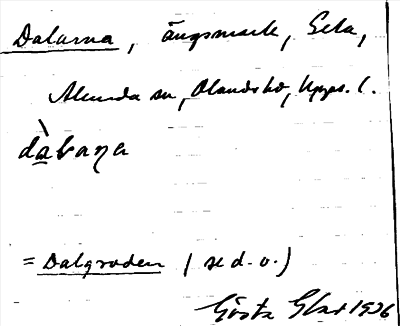 Dalarna, ängsmark, Gela,
Almunda sn, Olands hd, Upps. l.
dàbaηa
= Dalgroden (se d. o.)
Gösta Glad 1936